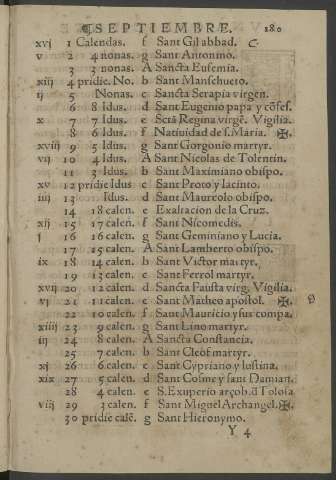 ¶SEPTIEMBRE. 180
xvj 1 Calendas. f Sant Gil abbad. C
v 2 4 nonas. g Sant Antonino.
3 3 nonas. A Sancta Eufemia.
xiij 4 pridie. No. b Sant Mansehueto.
ij 5 Nonas. c Sancta Serapia virgen.
6 8 Idus. d Sant Eugenio papa y cõfes.
x 7 7 Idus. e Sctã Regina virgẽ. Vigilia.
8 6 Idus. f Natiuidad de s. Maria. ✠.
xviij 9 5 Idus. g Sant Gorgonio martyr.
vij 10 4 Idus. A Sant Nicolas de Tolentin.
11 3 Idus. b Sant Maximiano obispo.
xv 12 pridie Idus c Sant Proto y Iacinto.
iiij 13 Idus. d Sant Maureolo obispo.
14 18 calen. e Exaltacion de la Cruz.
xij 15 17 calen. f Sant Nicomedis.
j 16 16 calen. g Sant Geminiano y Lucia.
17 15 calen. A Sant Lamberto obispo.
ix 18 14 calen. b Sant Victor martyr.
19 13 calen. c Sant Ferrol martyr.
xvij 20 12 calen. d Sancta Fausta virg. Vigilia.
vj 21 11 calen. e Sant Matheo apostol. ✠.
22 10 calen. f Sant Mauricio y sus compa.
xiiij 23 9 calen. g Sant Lino martyr.
iij 24 8 calen. A Sancta Constancia.
25 7 calen. b Sant Cleof martyr.
xj 26 6 calen. c Sant Cypriano y Iustina.
xix 27 5 calen. d Sant Cosme y sant Damian.
28 4 calen. e S. Exuperio arçob. ď Tolosa
viij 29 3 calen. f Sant Miguel Archangel. ✠.
30 pridie calẽ. g Sant Hieronymo.
Y 4